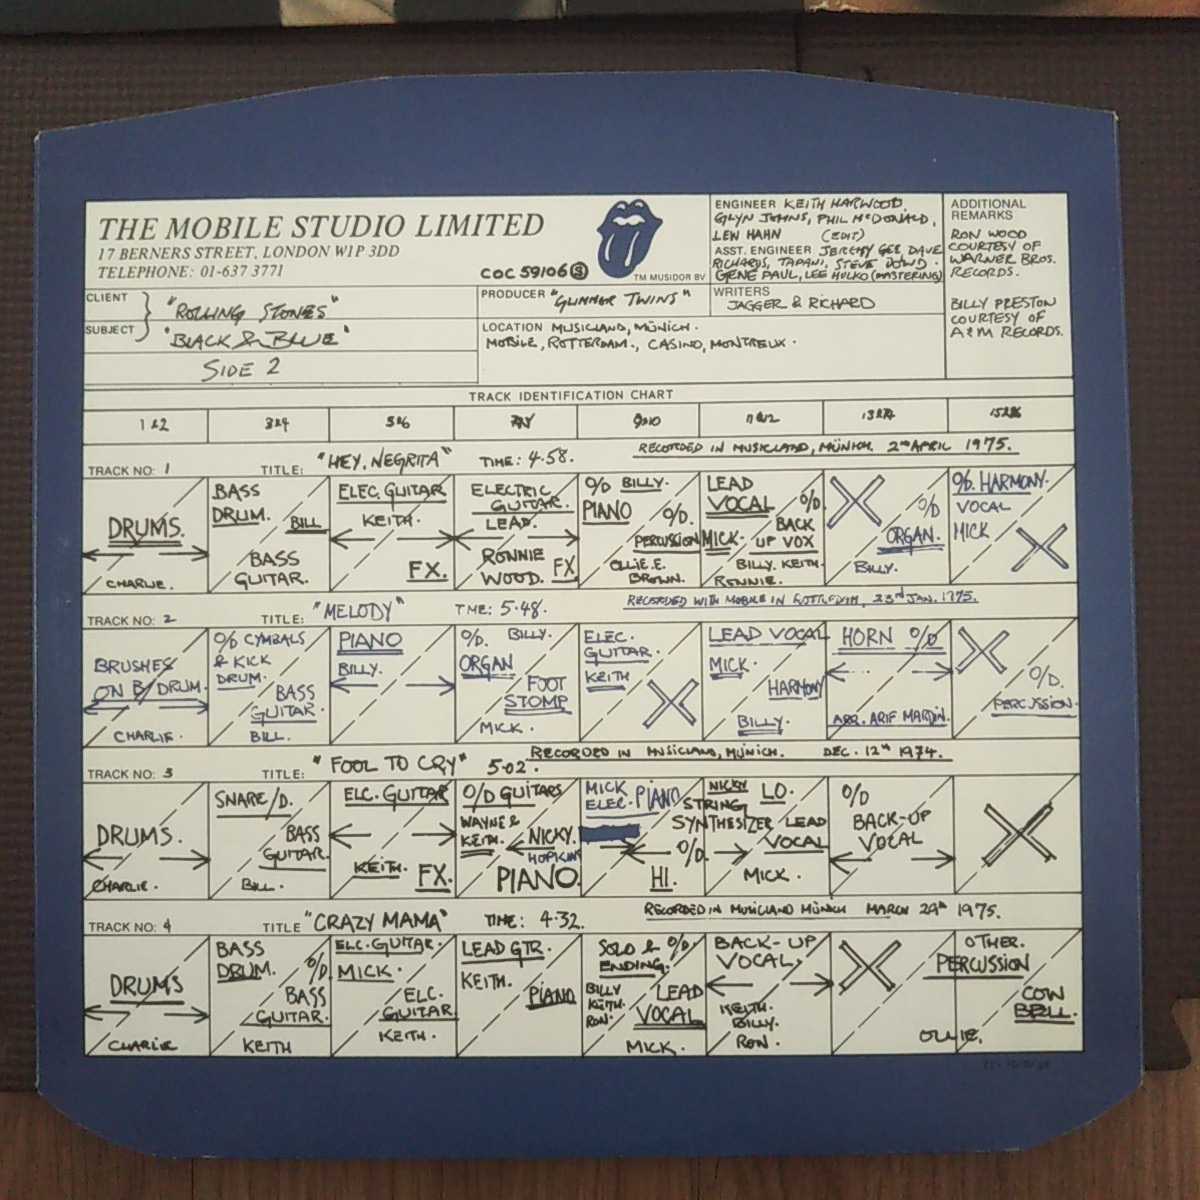 THE MOBILE STUDIO LIMITED
17 BERNERS STREET, LONDON W1P 3DD
TELEPHONE: 01-637 3771
COC 59106 S
TM MUSIDOR BV
ENGINEER KEITH HARWOOD,
GLYN JOHNS, PHIL McDONALD,
LEW HAHN (EDIT)
ASST. ENGINEER JEREMY GEE, DAVE
RICHARDS, TAPANI, STEVE DOWD.
GENE PAUL, LEE HULKO (MASTERING)
ADDITIONAL
REMARKS
RON WOOD
COURTESY OF
WARNER BROS.
RECORDS.
BILLY PRESTON
COURTESY OF
A&M RECORDS.
CLIENT "ROLLING STONES"
SUBJECT 'BLACK & BLUE'
SIDE 2
PRODUCER "GLIMMER TWINS"
WRITERS
JAGGER & RICHARD
LOCATION MUSICLAND, MÜNICH.
MOBILE, ROTTERDAM., CASINO, MONTREUX.
TRACK IDENTIFICATION CHART
1&2 3&4 5&6 7&8 9&10 11&12 13&14 15&16
TRACK NO: 1 TITLE: "HEY, NEGRITA" TIME: 4.58. RECORDED IN MUSICLAND, MÜNICH. 2ND APRIL 1975.
DRUMS.
CHARLIE.
BASS
DRUM.
BILL
BASS
GUITAR.
ELEC. GUITAR
KEITH.
FX.
ELECTRIC
GUITAR.
LEAD.
RONNIE
WOOD. FX
O/D BILLY.
PIANO
O/D.
PERCUSSION
OLLIE. E.
BROWN.
LEAD
VOCAL
MICK.
O/D
BACK
UP VOX
BILLY. KEITH.
RONNIE.
O/D
ORGAN.
BILLY.
O/D. HARMONY.
VOCAL
MICK
TRACK NO: 2 TITLE: "MELODY" TIME: 5.48. RECORDED WITH MOBILE IN ROTTERDAM, 23RD JAN. 1975.
BRUSHES
ON B/DRUM.
CHARLIE.
O/D CYMBALS
& KICK
DRUM.
BASS
GUITAR.
BILL.
PIANO
BILLY.
O/D. BILLY.
ORGAN
FOOT
STOMP
MICK.
ELEC.
GUITAR.
KEITH
LEAD VOCAL
MICK.
HARMONY
BILLY.
HORN O/D
ARR. ARIF MARDIN.
O/D.
PERCUSSION.
TRACK NO: 3 TITLE: "FOOL TO CRY" 5.02. RECORDED IN MUSICLAND, MÜNICH. DEC. 12TH 1974.
DRUMS.
CHARLIE.
SNARE/D.
BASS
GUITAR.
BILL.
ELC. GUITAR
KEITH. FX.
O/D GUITARS
WAYNE &
KEITH.
NICKY.
HOPKINS
PIANO.
MICK
ELEC. PIANO
NICKY
STRING
SYNTHESIZER
O/D
HI.
LO.
LEAD
VOCAL
MICK.
O/D
BACK-UP
VOCAL
TRACK NO: 4 TITLE "CRAZY MAMA" TIME: 4.32. RECORDED IN MUSICLAND MÜNICH MARCH 29TH 1975.
DRUMS
CHARLIE
BASS
DRUM.
O/D.
BASS
GUITAR.
KEITH
ELC. GUITAR.
MICK.
ELC.
GUITAR
KEITH.
LEAD GTR.
KEITH.
PIANO
SOLO & O/D.
ENDING.
BILLY
KEITH.
RON.
LEAD
VOCAL
MICK.
BACK-UP
VOCAL.
KEITH.
BILLY.
RON.
OTHER.
PERCUSSION
COW
BELL.
OLLIE.